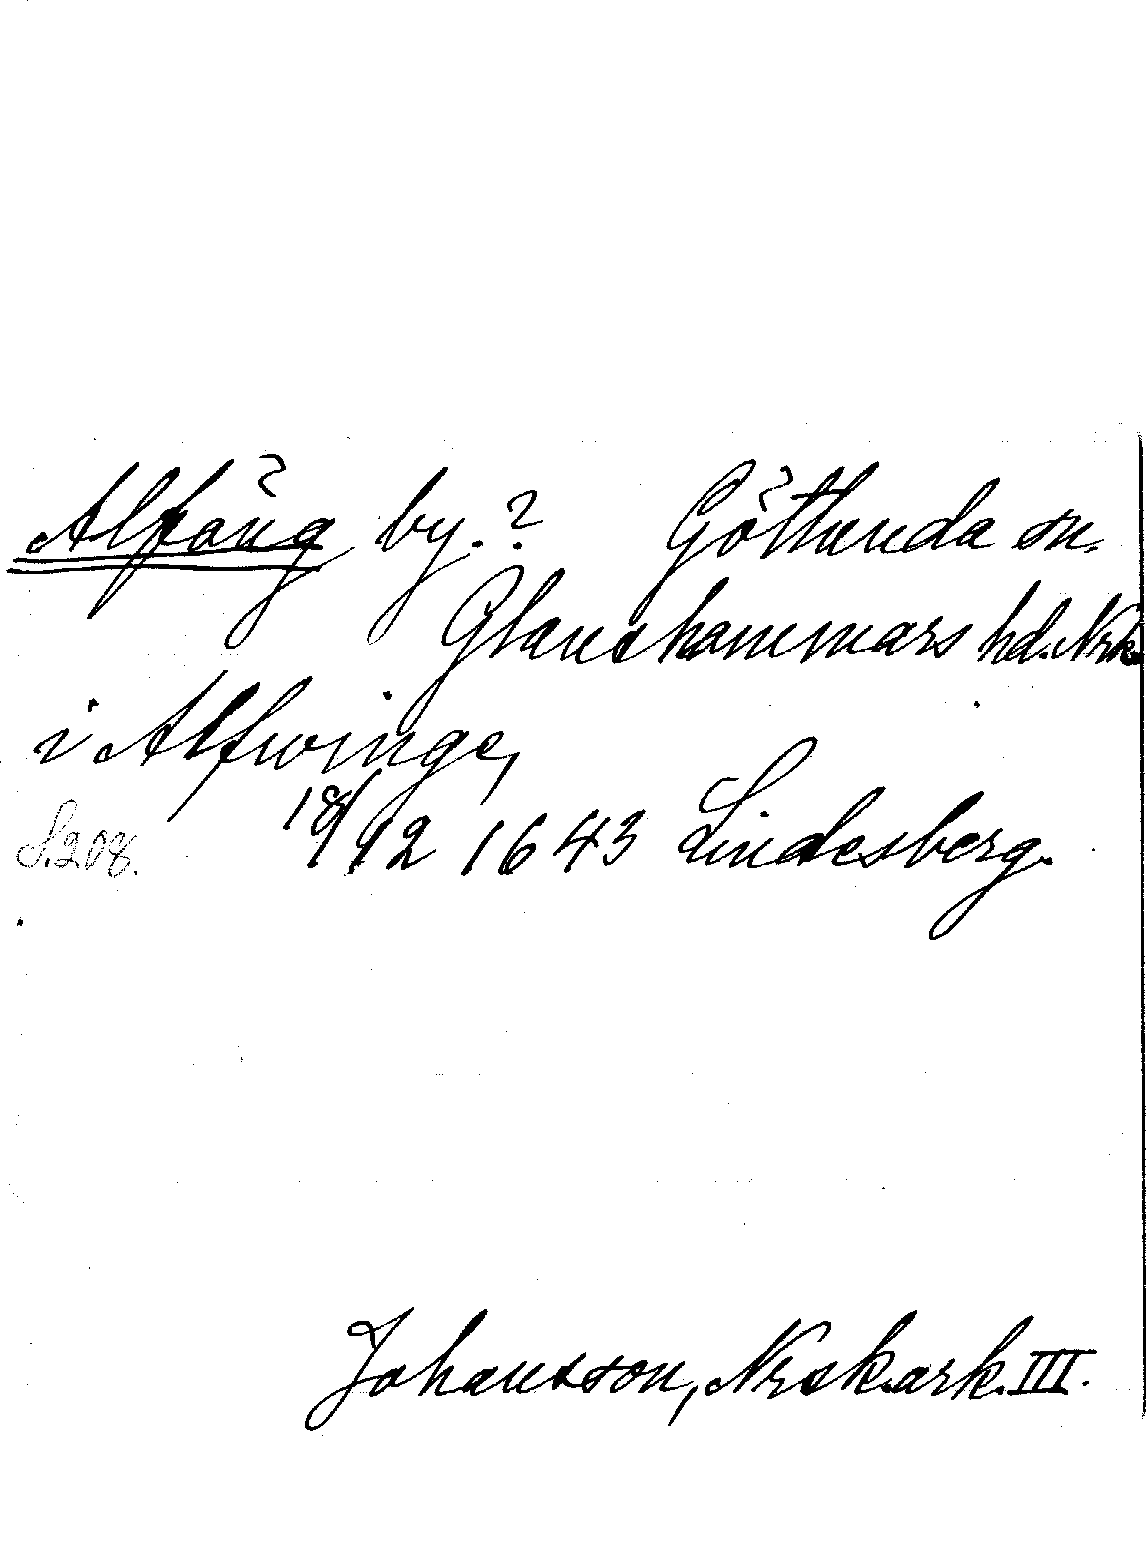 Alfäng by.? Götlunda sn.
Glanshammars hd. Nrk
i Alfwinge,
S.208. 18/12 1643 Lindesberg.
Johansson, Nrsk.ark. III.